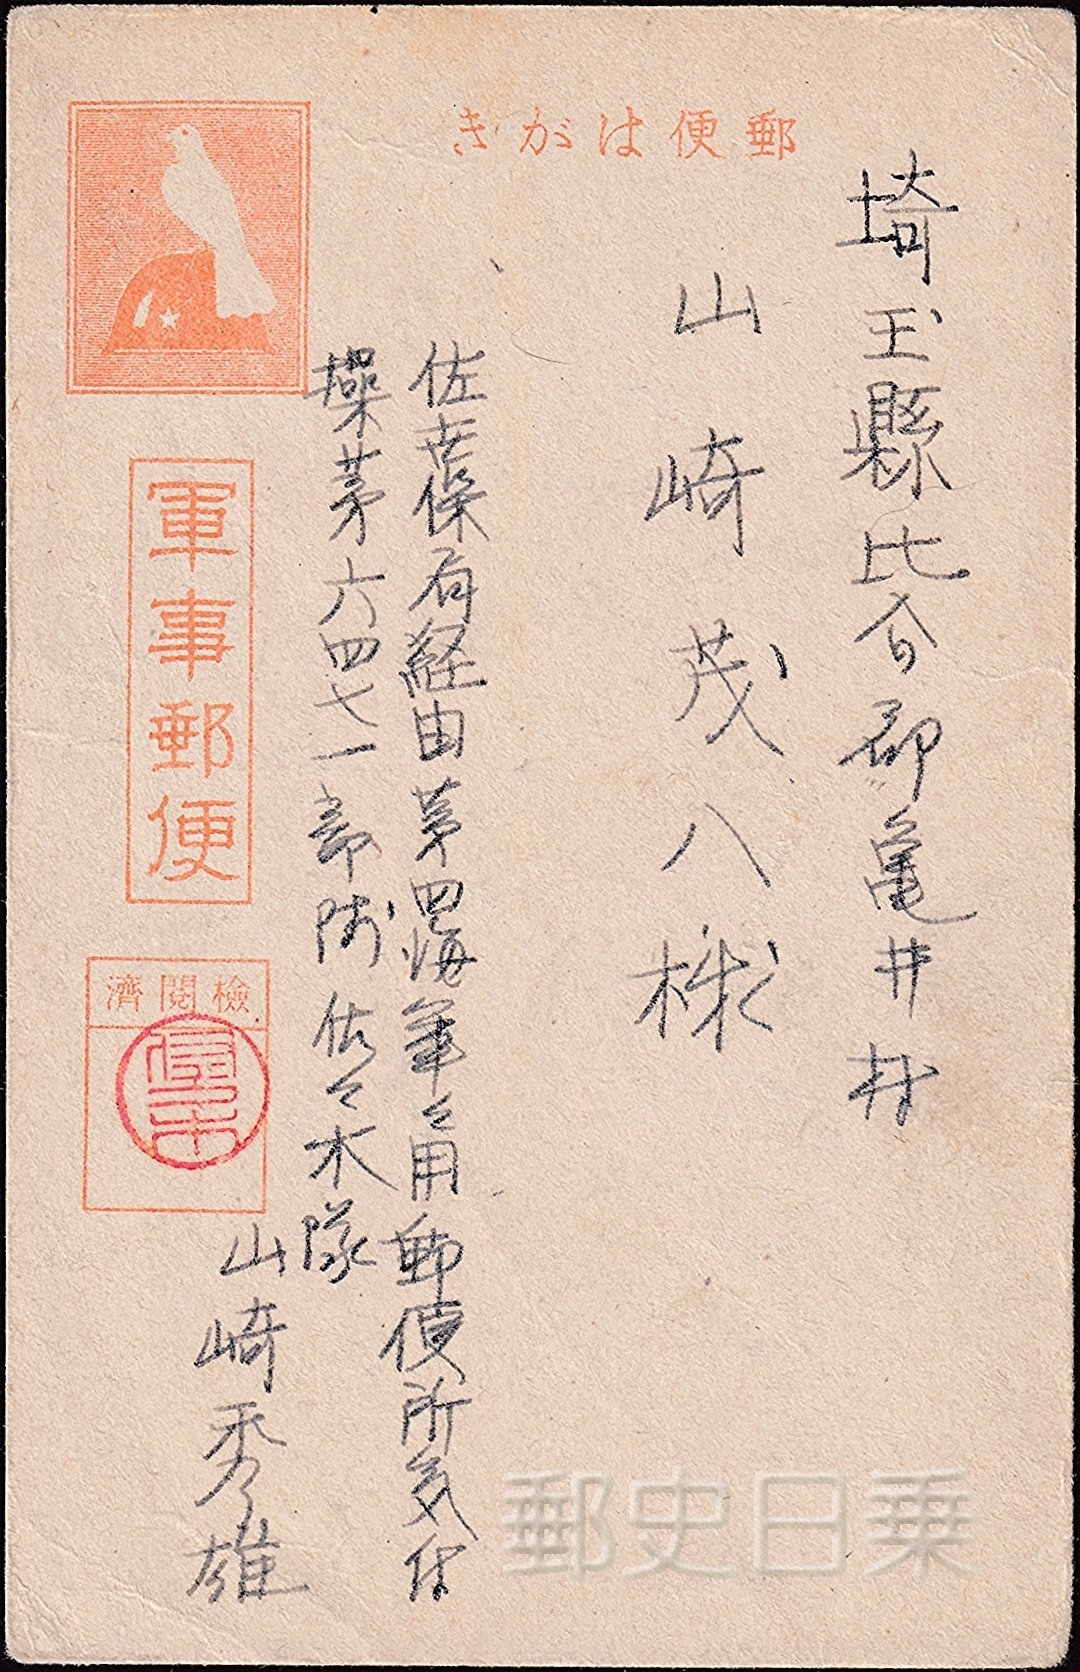 郵便はがき
埼玉縣比企郡亀井村
山崎茂八様
佐世保局経由第四海軍々用郵便所気付
操第六四七一部隊佐々木隊
山崎秀雄
軍事郵便
検閲濟
郵史日乗